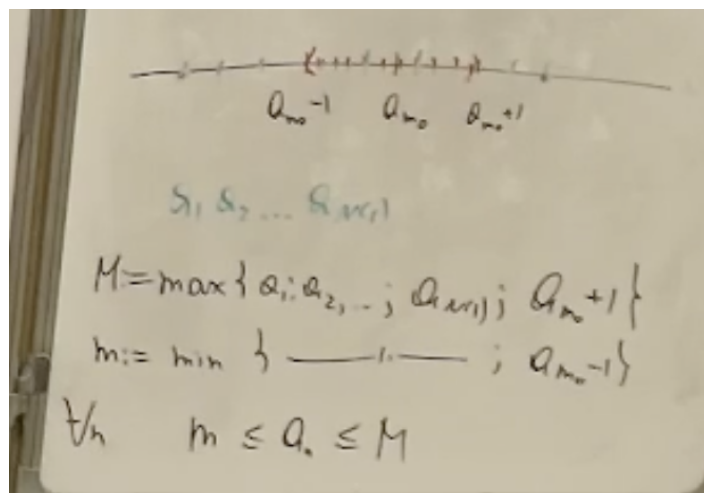 a_{m_0}-1 a_{m_0} a_{m_0}+1
a_1 a_2 ... a_{N(1)}
M:=max{a_1; a_2, ...; a_{N(1)}; a_{m_0}+1}
m:= min { —〃— ; a_{m_0}-1}
∀n m ≤ a_n ≤ M